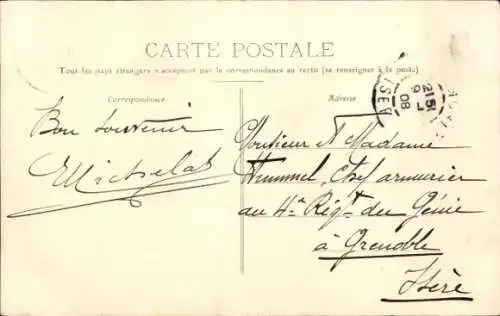 CARTE POSTALE
Tous les pays étrangers n'acceptent pas la correspondance au recto (se renseigner à la poste.)
Correspondance
Adresse
Bon souvenir
Monsieur et Madame
Hummel, Chef armurier
au 4e Régt du Génie
à Grenoble
Isère
ISÈRE
08